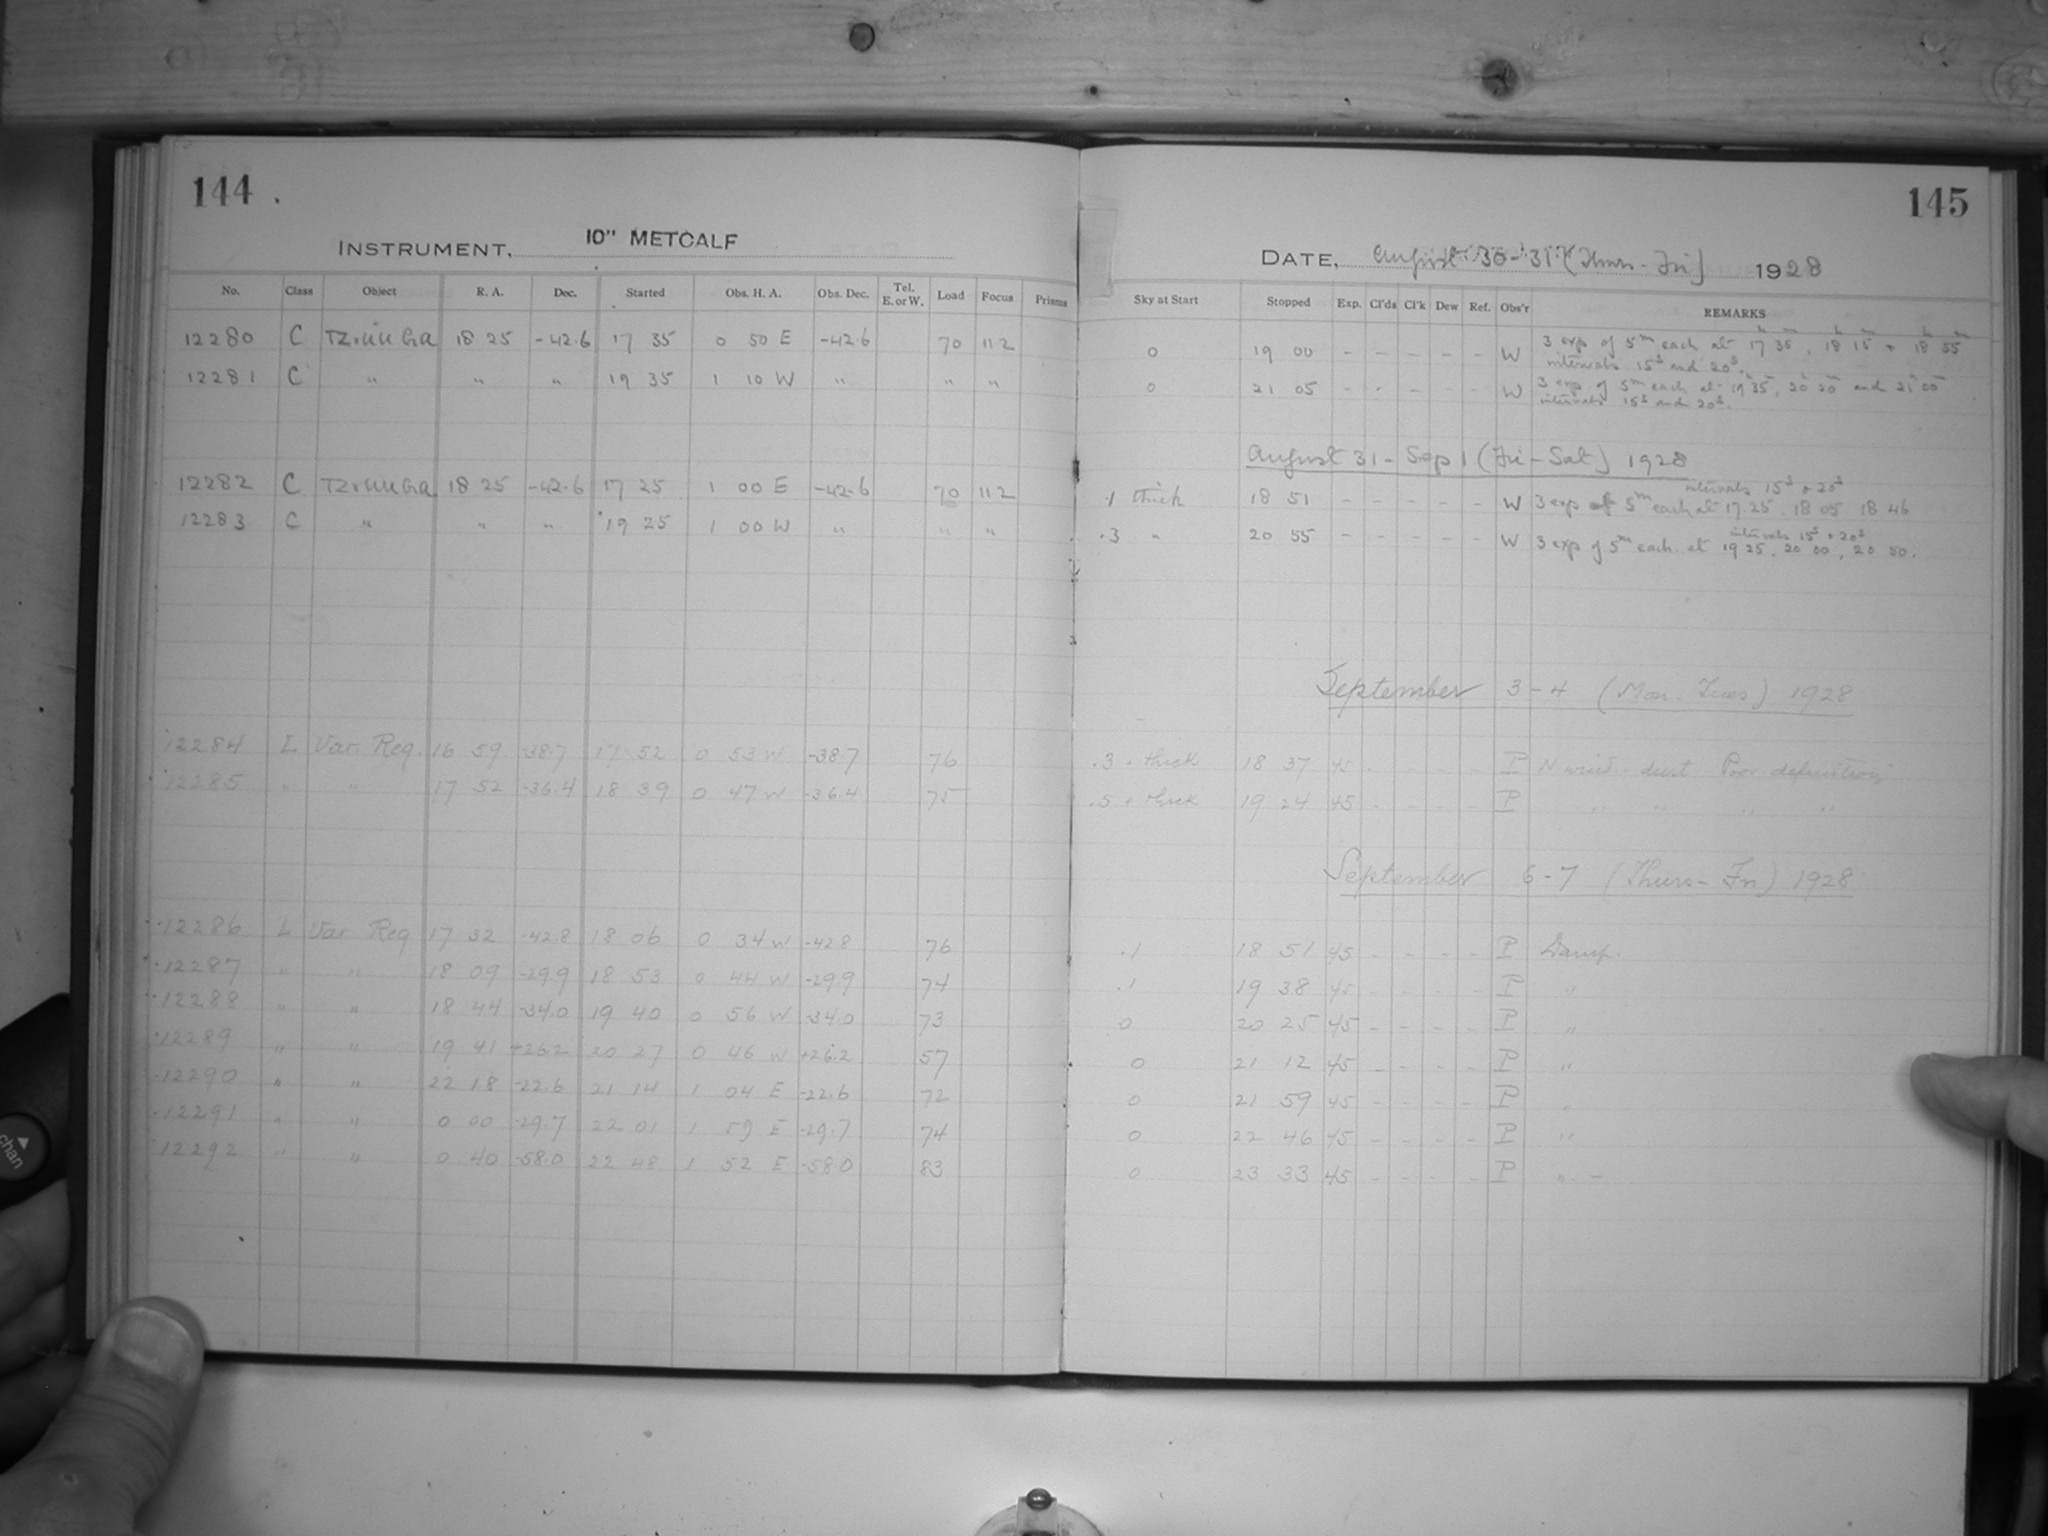 144
INSTRUMENT, 10" METCALF
No. Class Object R. A. Dec. Started Obs. H. A. Obs. Dec. Tel. E. or W. Load Focus Prisms
12280 C 18 25 -42.6 17 35 0 50 E -42.6 70 112
12281 C " " " 19 35 1 10 W " " "
12282 C 18 25 -42.6 17 25 1 00 E -42.6 70 112
12283 C " " " 19 25 1 00 W " " "
12284 L Var. Reg. 16 59 -38.7 17 52 0 53 W -38.7 76
12285 " " 17 52 -36.4 18 39 0 47 W -36.4 75
12286 L Var Reg 17 32 -42.8 18 06 0 34 W -42.8 76
12287 " " 18 09 -29.9 18 53 0 44 W -29.9 74
12288 " " 18 44 -34.0 19 40 0 56 W -34.0 73
12289 " " 19 41 +26.2 20 27 0 46 W +26.2 57
12290 " " 22 18 -22.6 21 14 1 04 E -22.6 72
12291 " " 0 00 -29.7 22 01 1 59 E -29.7 74
12292 " " 0 40 -58.0 22 48 1 52 E -58.0 83
145
DATE, August 30-31 (Thurs-Fri) 1928
Sky at Start Stopped Exp. Cl'ds Cl'k Dew Ref. Obs'r REMARKS
0 19 00 - - - - - W 3 exp of 5m each at 17h 35m, 18h 15m + 18h 55m
intervals 15s and 20s.
0 21 05 - - - - - W 3 exp of 5m each at 19 35, 20 20 and 21 00
intervals 15s and 20s.
August 31 - Sep 1 (Fri-Sat) 1928
intervals 15s + 20s
.1 thick 18 51 - - - - - W 3 exp of 5m each at 17.25. 18 05 18 46
intervals 15s + 20s
.3 " 20 55 - - - - - W 3 exp of 5m each at 19 25, 20 00, 20 50.
September 3-4 (Mon-Tues) 1928
.3 + thick 18 37 45 - - - - P N wind - dust. Poor definition
.5 + thick 19 24 45 - - - - P " " " "
September 6-7 (Thurs-Fri) 1928
.1 18 51 45 - - - - P Damp.
.1 19 38 45 - - - - P "
0 20 25 45 - - - - P "
0 21 12 45 - - - - P "
0 21 59 45 - - - - P "
0 22 46 45 - - - - P "
0 23 33 45 - - - - P " -